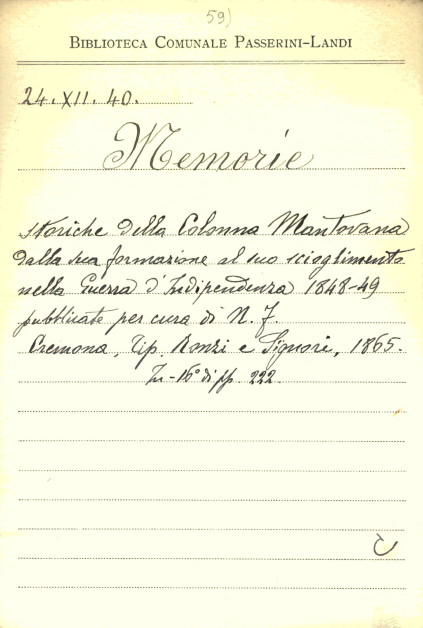 59)
BIBLIOTECA COMUNALE PASSERINI-LANDI
24.XII.40.
Memorie
storiche della Colonna Mantovana
dalla sua formazione al suo scioglimento
nella Guerra d'Indipendenza 1848-49
pubblicate per cura di N. F.
Cremona, Tip. Ronzi e Signori, 1865.
In-16° di pp. 222.